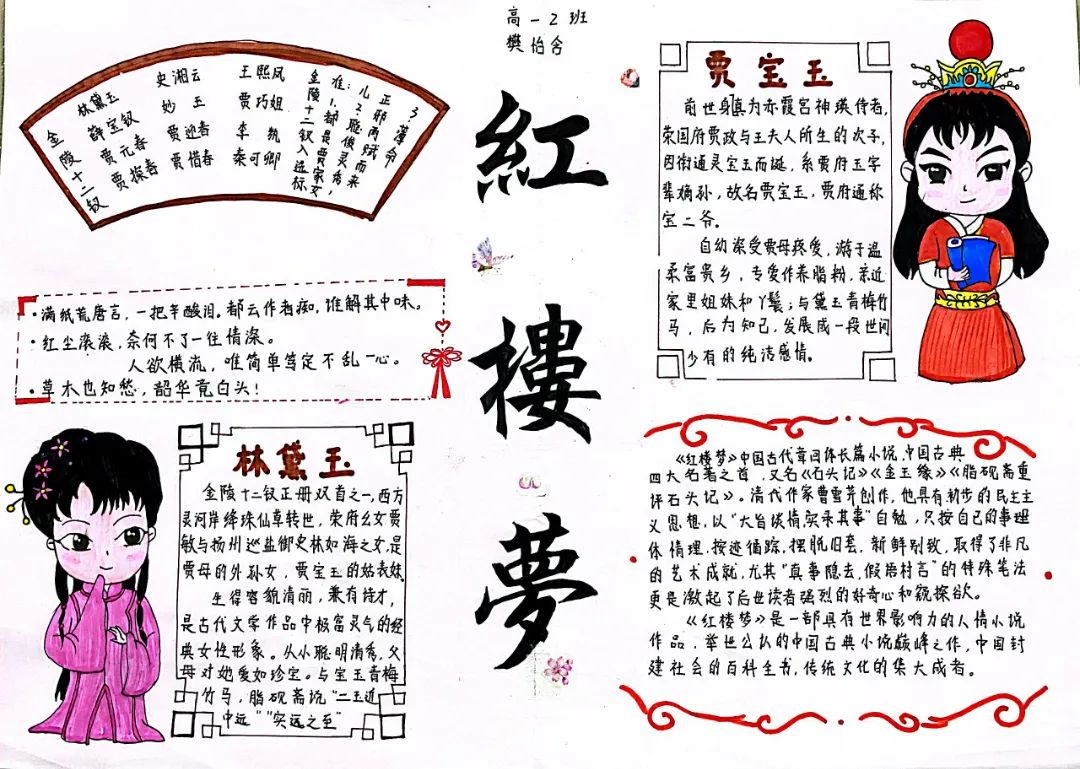 高一2班
樊怡含
紅樓夢
金陵十二钗
林黛玉
薛宝钗
贾元春
贾探春
史湘云
妙玉
贾迎春
贾惜春
王熙凤
贾巧姐
李纨
秦可卿
金陵十二钗入选标
准：1.都是贾家女
儿 2.聪俊灵秀，
正邪两赋而来
3薄命
·满纸荒唐言，一把辛酸泪。都云作者痴，谁解其中味。
·红尘滚滚，奈何不了一往情深。
人欲横流，唯简单笃定不乱一心。
·草木也知愁，韶华竟白头！
林黛玉
金陵十二钗正册双首之一，西方
灵河岸绛珠仙草转世，荣府幺女贾
敏与扬州巡盐御史林如海之女，是
贾母的外孙女，贾宝玉的姑表妹。
生得容貌清丽，兼有诗才，
是古代文学作品中极富灵气的经
典女性形象。从小聪明清秀，父
母对她爱如珍宝。与宝玉青梅
竹马，脂砚斋说“二玉近
中远”“实远之至”
贾宝玉
前世身真为赤霞宫神瑛侍者，
荣国府贾政与王夫人所生的次子，
因衔通灵宝玉而诞，系贾府玉字
辈嫡孙，故名贾宝玉，贾府通称
宝二爷。
自幼深受贾母疼爱，游于温
柔富贵乡，专爱作养脂粉，亲近
家里姐妹和丫鬟；与黛玉青梅竹
马，后为知己，发展成一段世间
少有的纯洁感情。
《红楼梦》中国古代章回体长篇小说，中国古典
四大名著之首，又名《石头记》《金玉缘》《脂砚斋重
评石头记》。清代作家曹雪芹创作，他具有初步的民主主
义思想，以“大旨谈情，实录其事”自勉，只按自己的事理
体情理，按迹循踪，摆脱旧套，新鲜别致，取得了非凡
的艺术成就，尤其“真事隐去，假语村言”的特殊笔法
更是激起了后世读者强烈的好奇心和窥探欲。
《红楼梦》是一部具有世界影响力的人情小说
作品，举世公认的中国古典小说巅峰之作，中国封
建社会的百科全书，传统文化的集大成者。